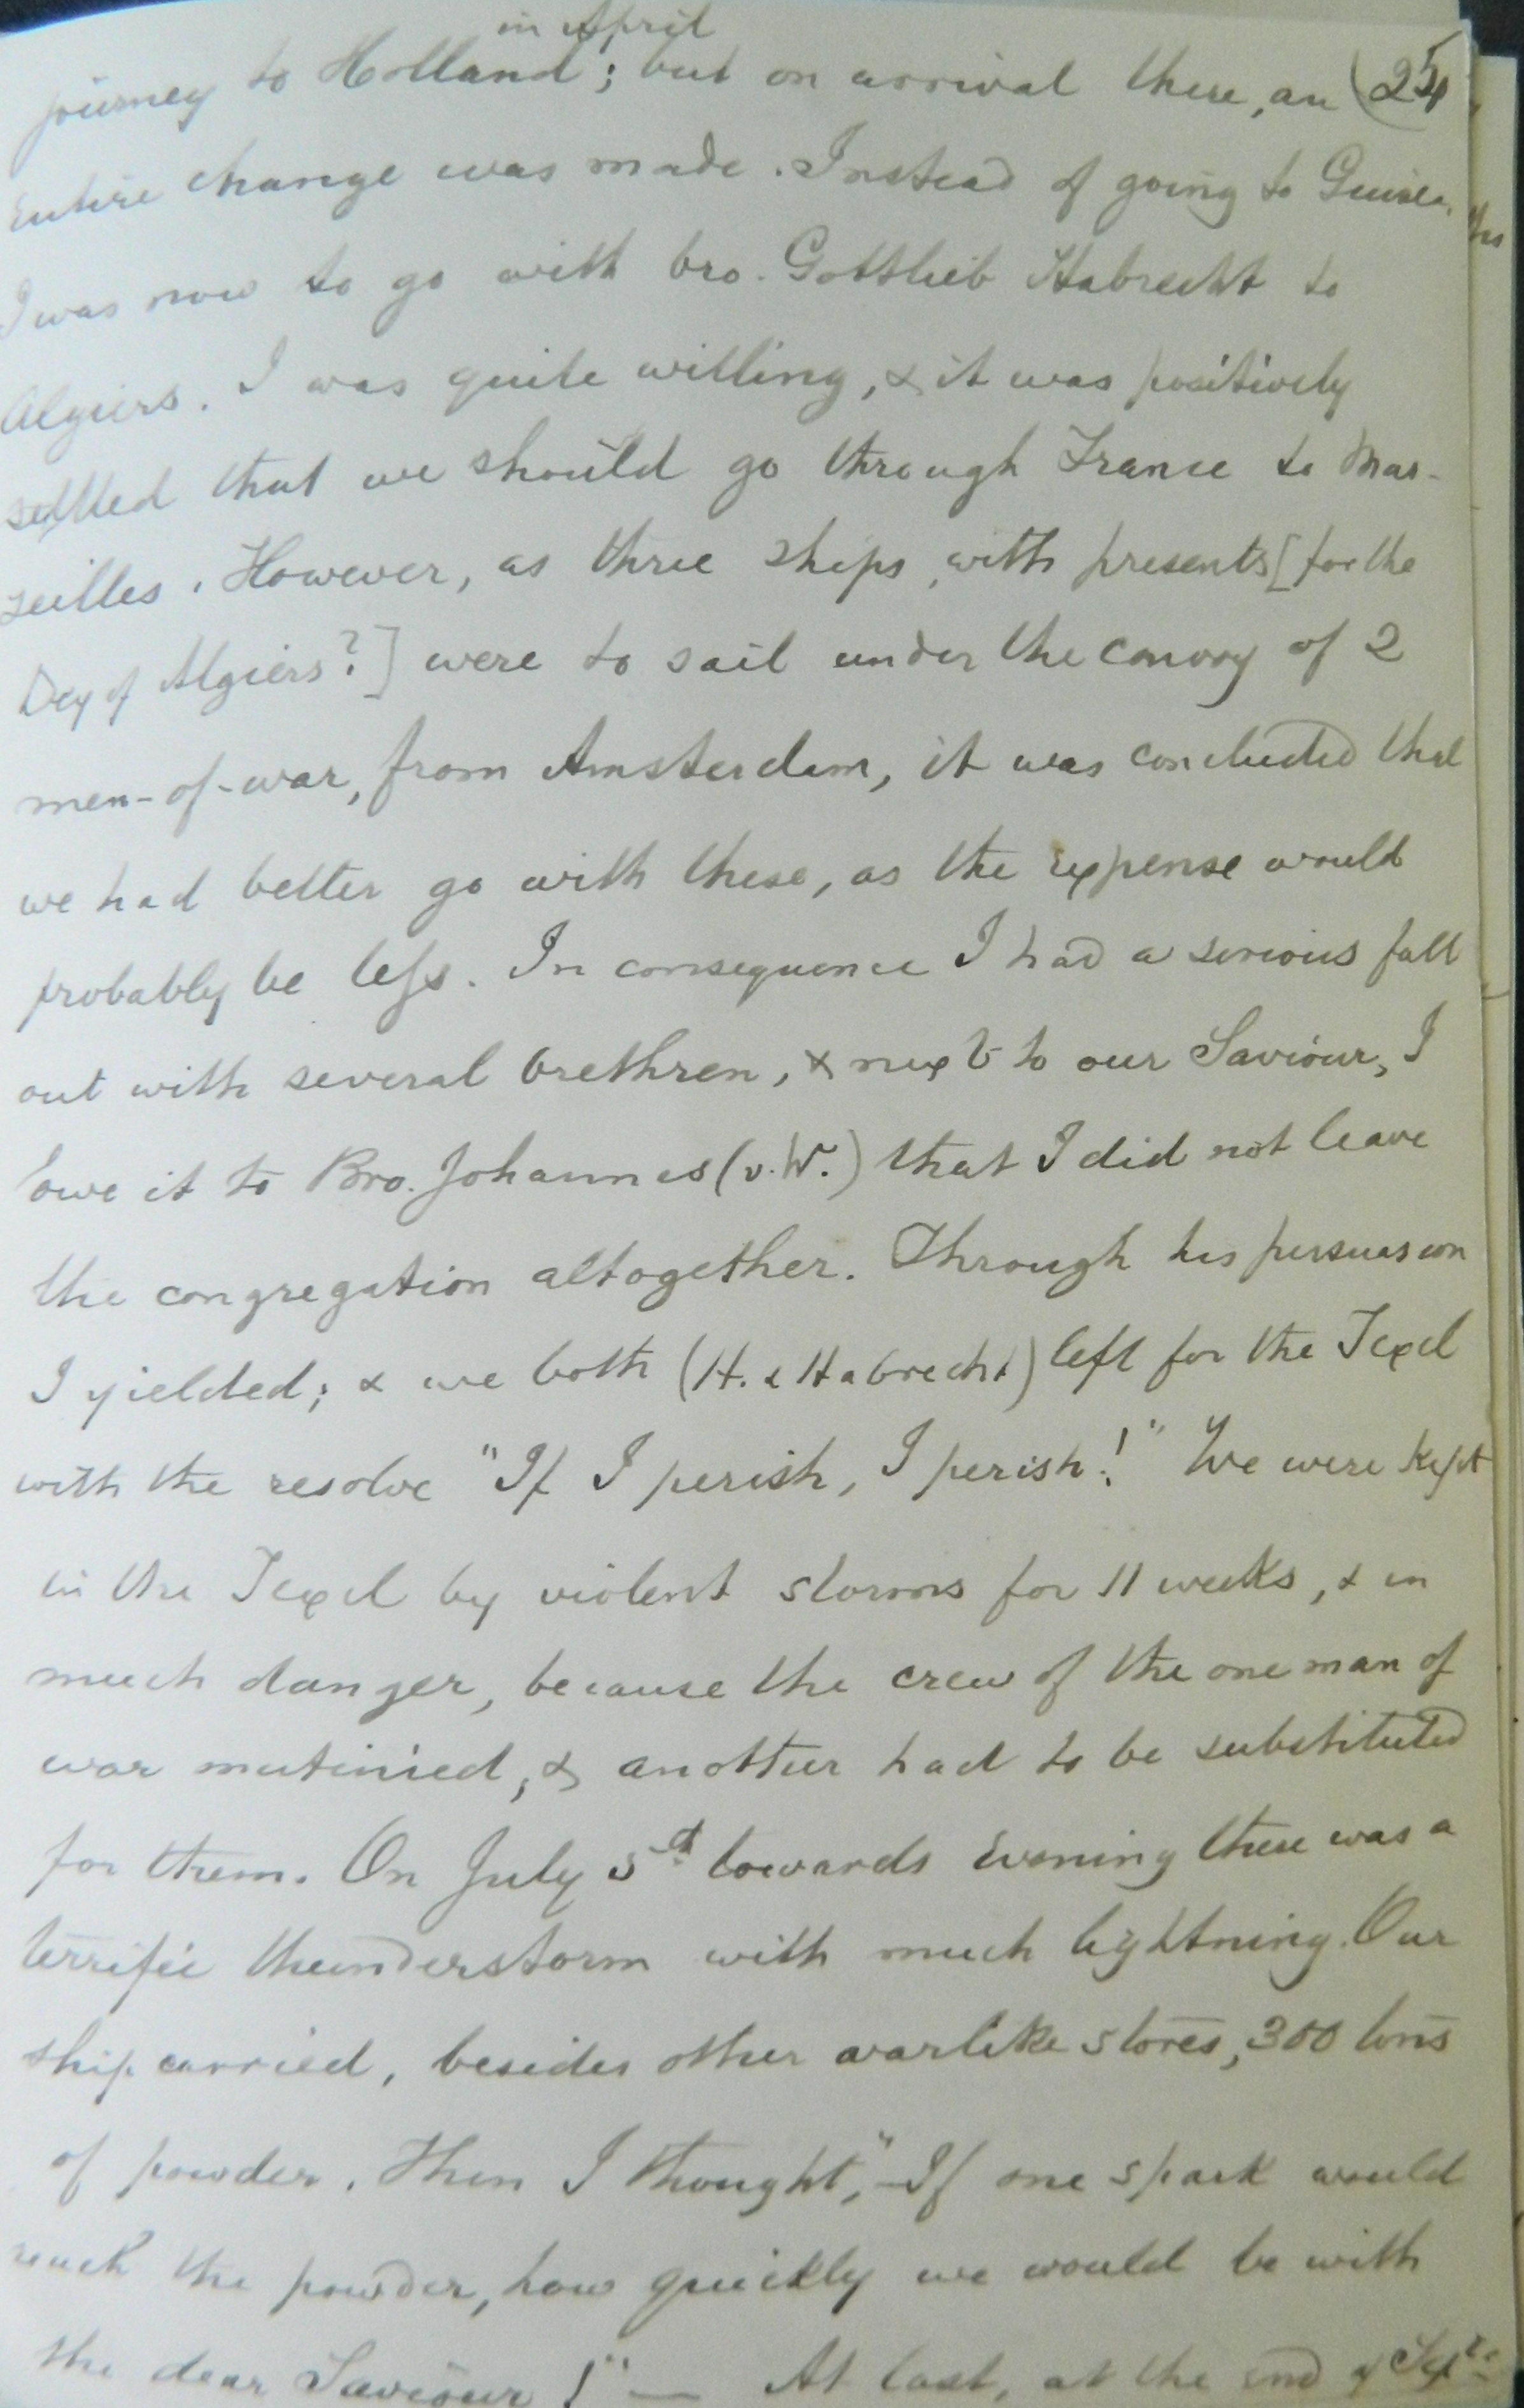 in April
journey to Holland; but on arrival there, an (25
entire change was made. Instead of going to Guinea,
I was now to go with bro. Gottlieb Habrecht to
Algiers. I was quite willing, & it was positively
settled that we should go through France to Mar-
seilles. However, as three ships, with presents [for the
Dey of Algiers?] were to sail under the convoy of 2
men-of-war, from Amsterdam, it was concluded that
we had better go with these, as the expense would
probably be less. In consequence I had a serious fall
out with several brethren, & next to our Saviour, I
owe it to Bro. Johannes (v. W.) that I did not leave
the congregation altogether. Through his persuasion
I yielded; & we both (H. & Habrecht) left for the Texel
with the resolve "If I perish, I perish!" We were kept
in the Texel by violent storms for 11 weeks, & in
much danger, because the crew of the one man of
war mutinied, & another had to be substituted
for them. On July towards evening there was a
terrific thunderstorm with much lightning. Our
ship carried, besides other warlike stores, 300 tons
of powder. Then I thought, "If one spark would
reach the powder, how quickly we would be with
the dear Saviour!" — At last, at the end of